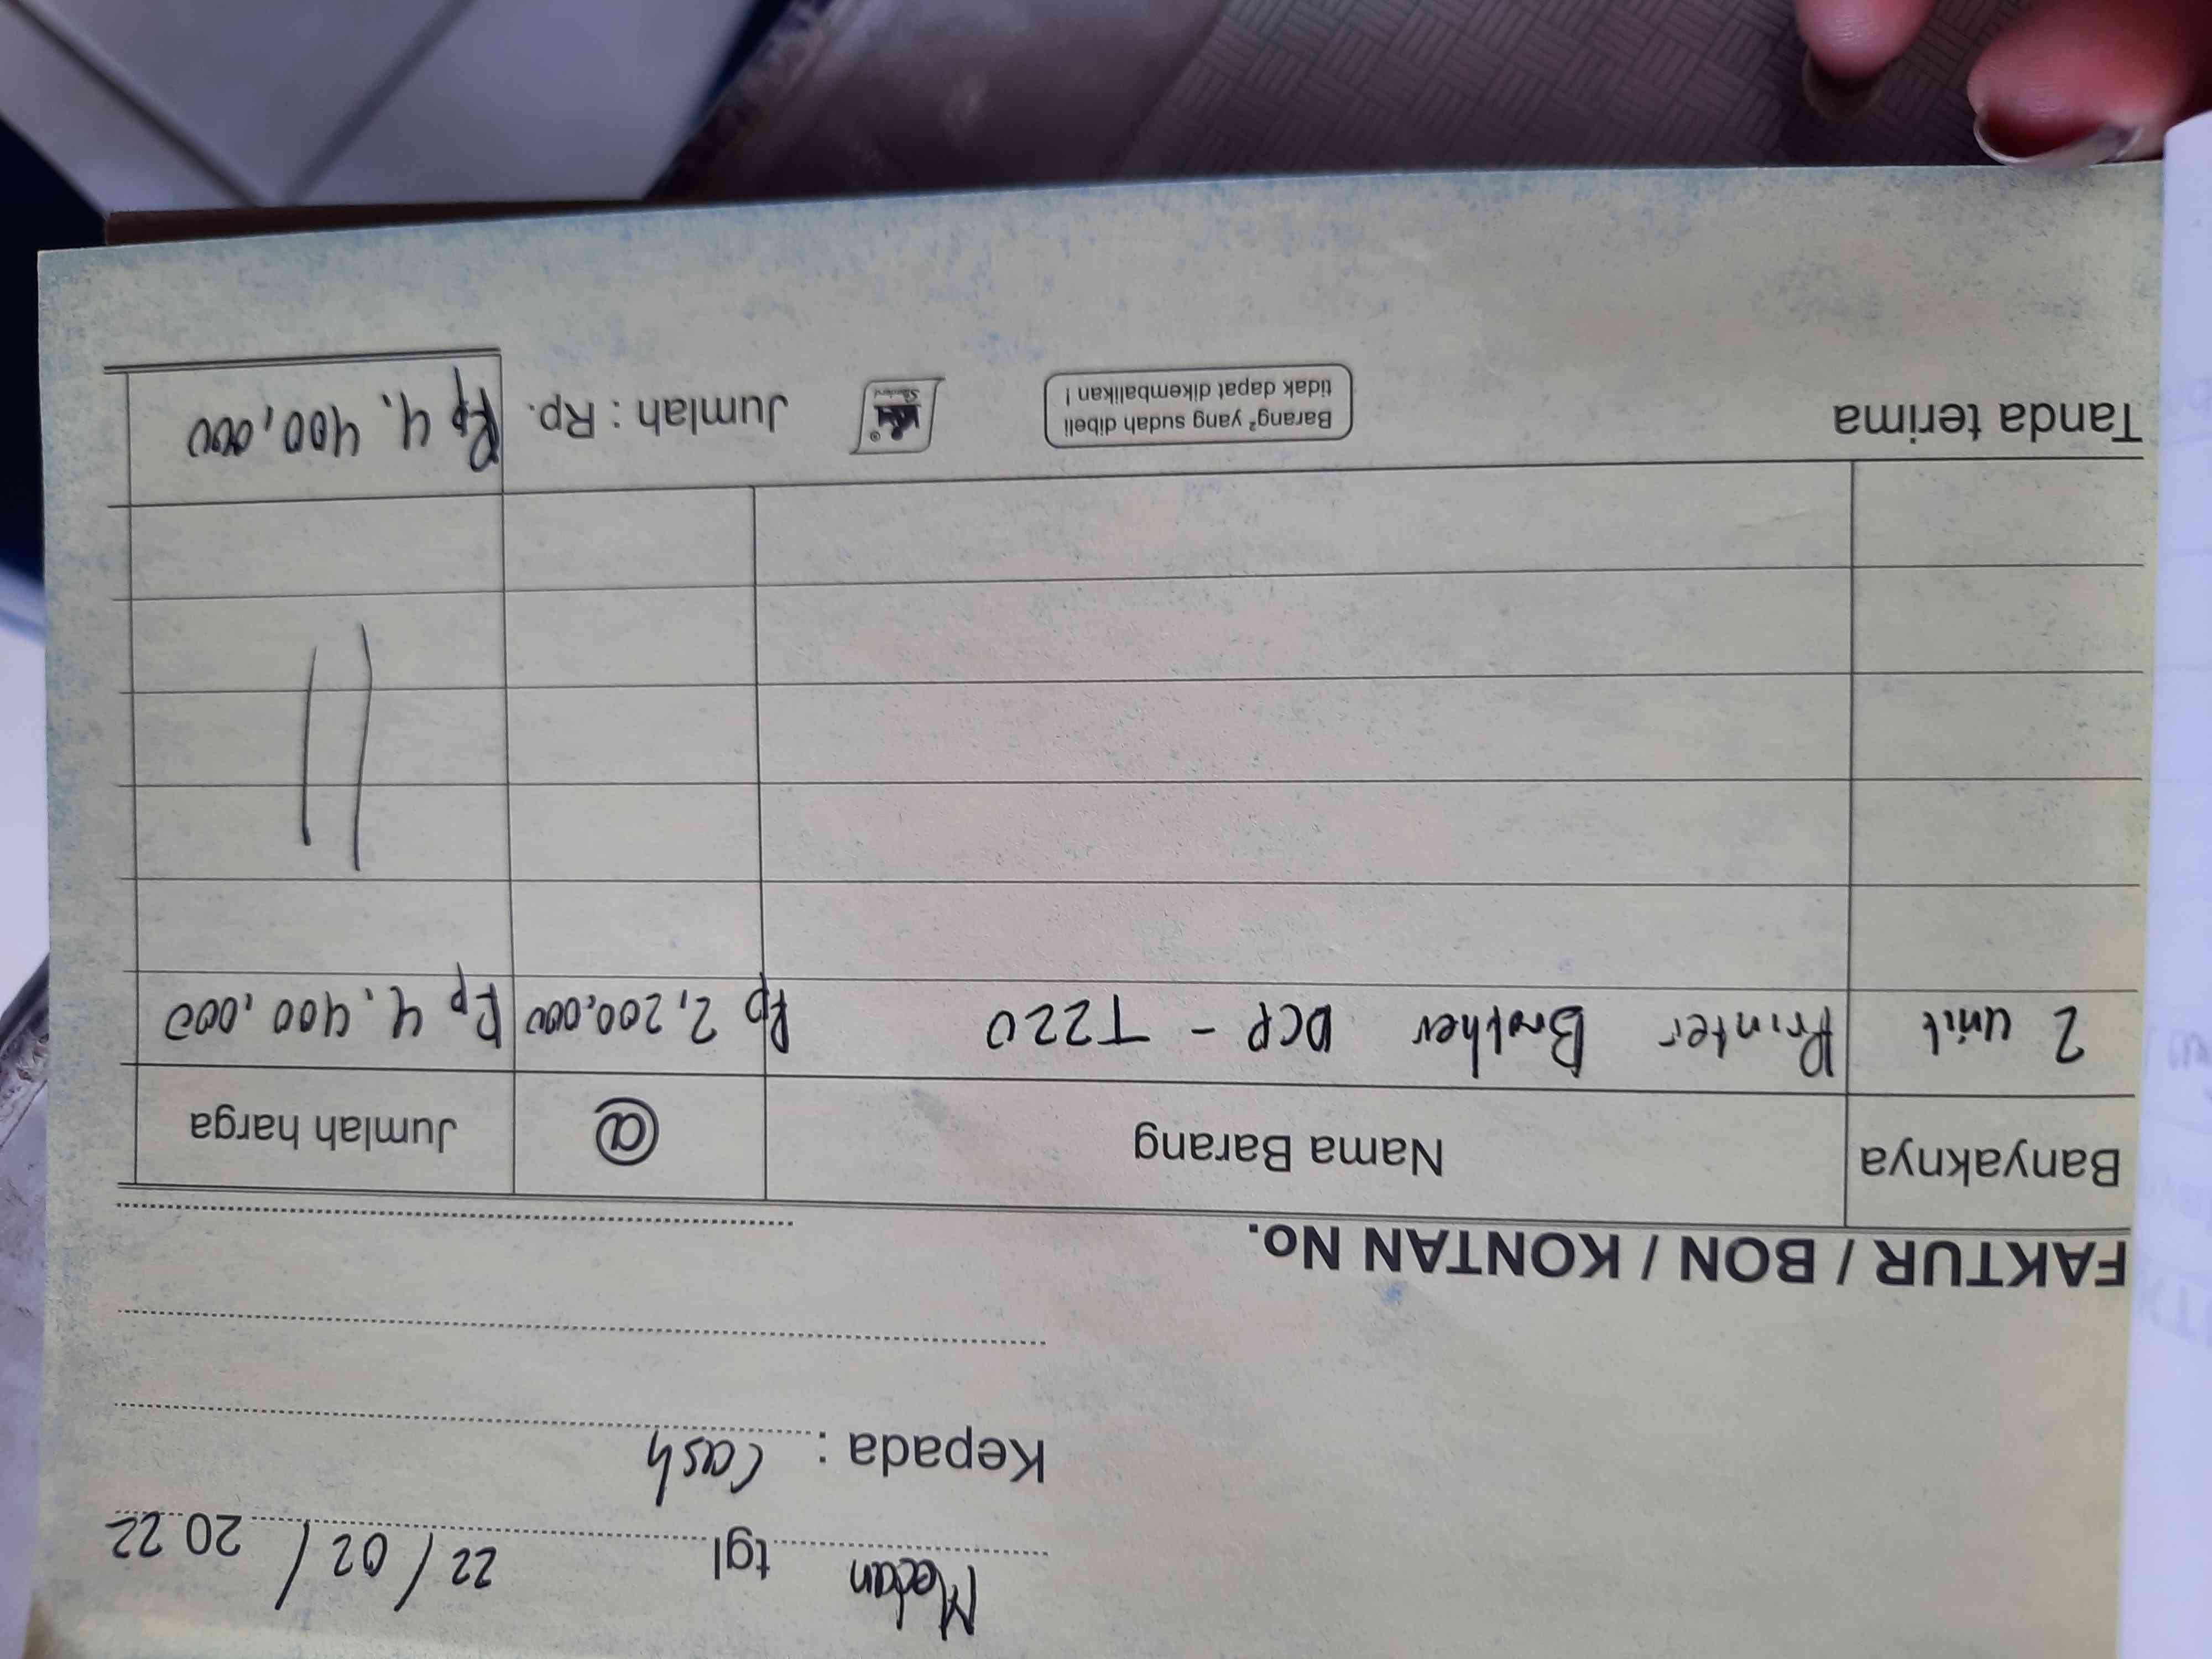 Medan tgl 22/02/2022
Kepada : Cash
FAKTUR / BON / KONTAN No.
Banyaknya Nama Barang @ Jumlah harga
2 Unit Printer Brother DCP - T220 Rp 2,200,000 Rp 4.400,000
Tanda terima Barang² yang sudah dibeli tidak dapat dikembalikan ! Jumlah : Rp. Rp 4.400,000